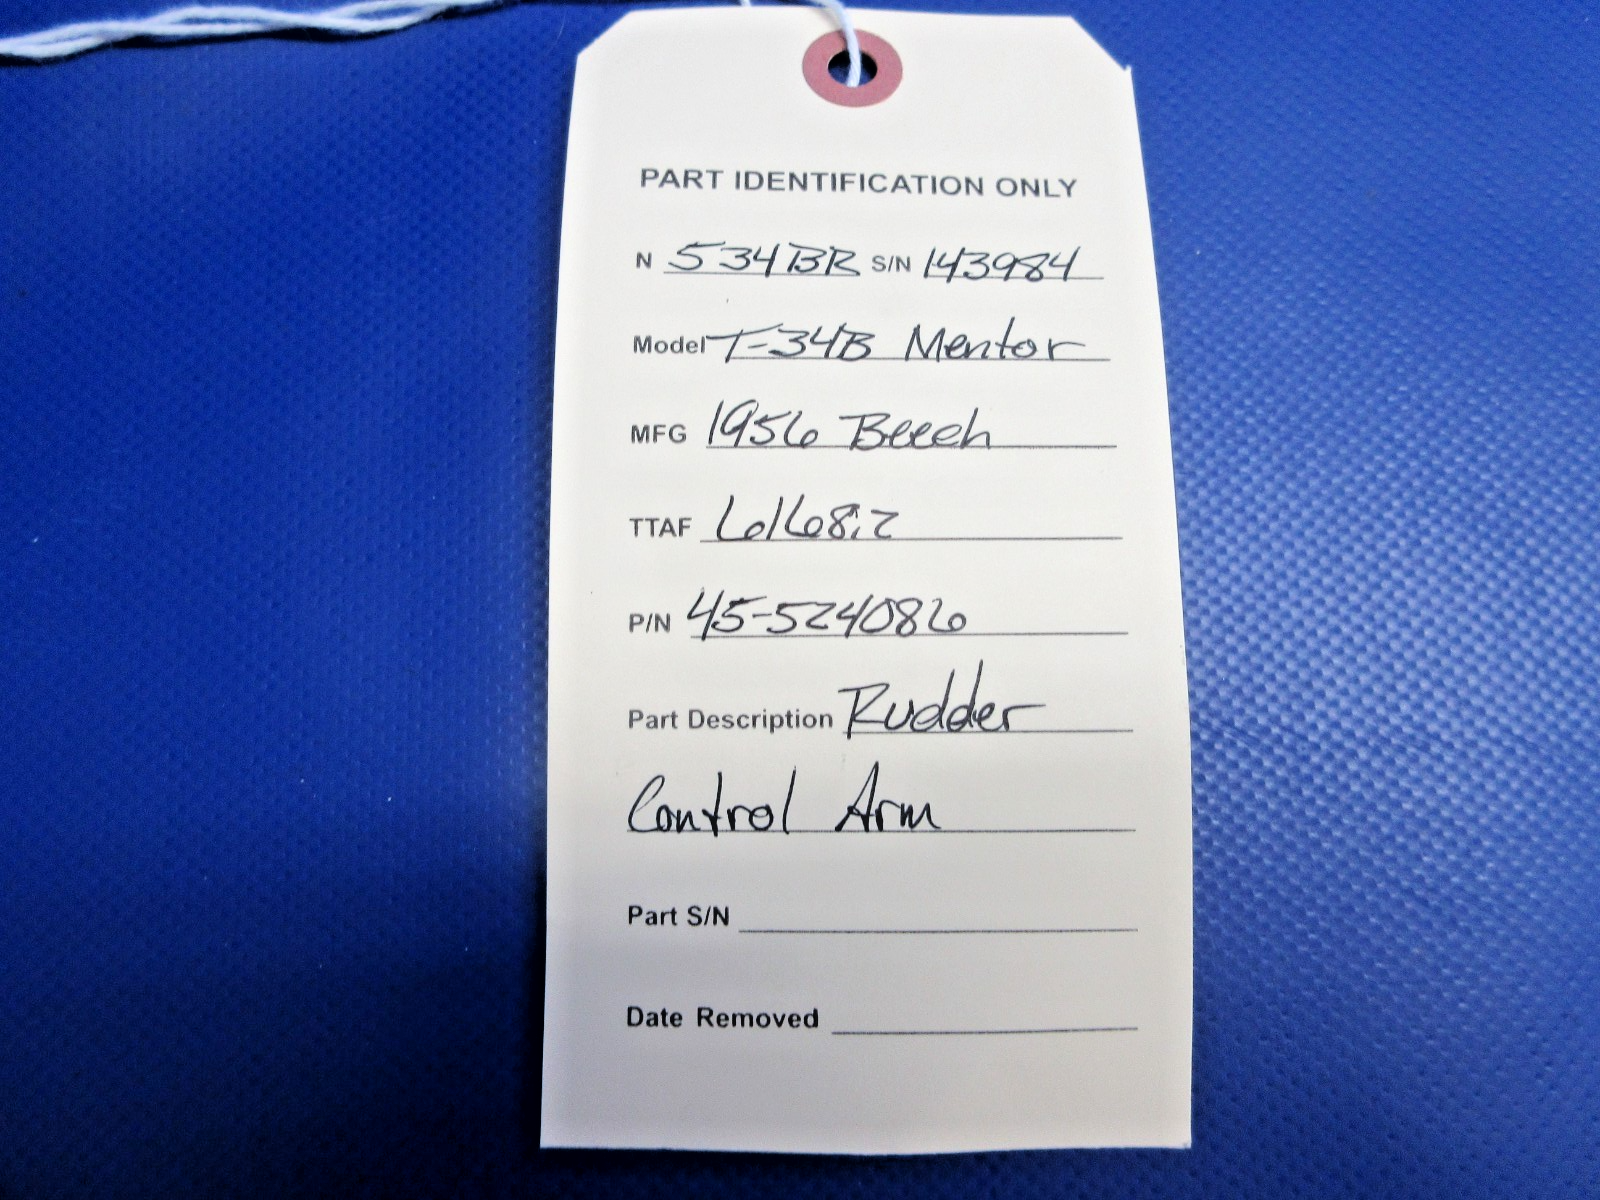 PART IDENTIFICATION ONLY
N 534BR S/N 143984
Model T-34B Mentor
MFG 1956 Beech
TTAF 6168.2
P/N 45-524086
Part Description Rudder
Control Arm
Part S/N
Date Removed